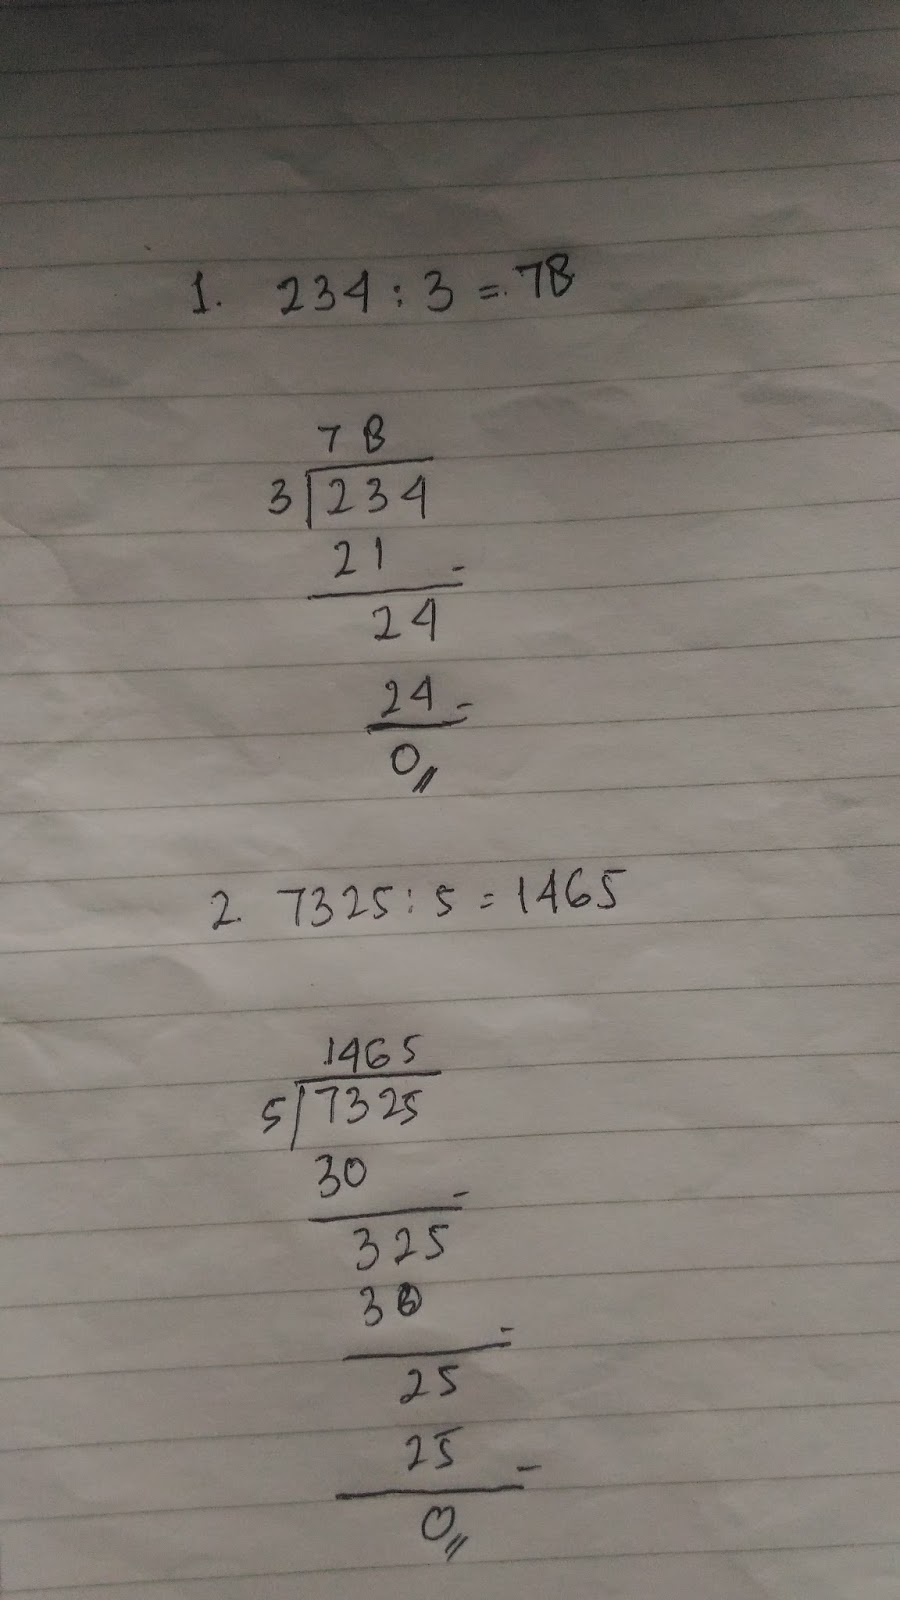 1. 234 : 3 = 78
78
3 234
21 -
24
24 -
0
2. 7325 : 5 = 1465
1465
5 7325
30 -
325
30 -
25
25 -
0